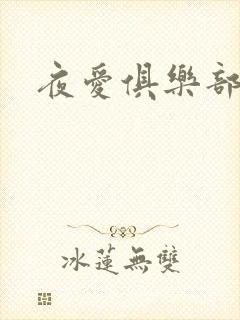 夜愛俱樂部
冰蓮無雙